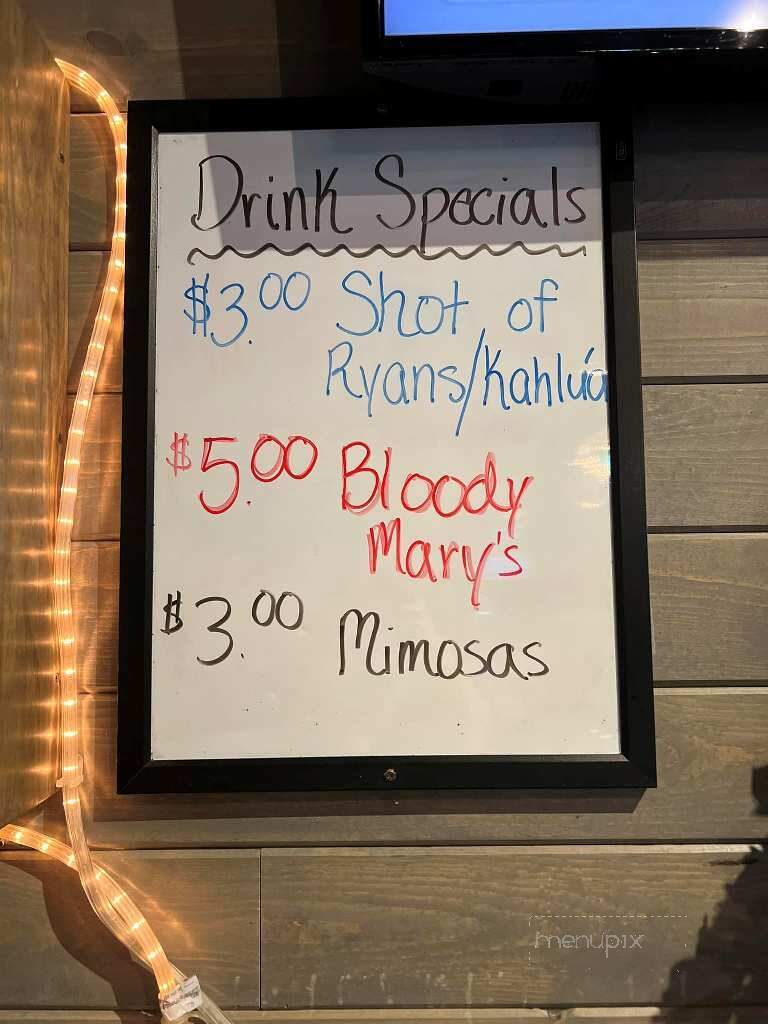 Drink Specials
$3.00 Shot of
Ryans/Kahlúa
$5.00 Bloody
Mary's
$3.00 Mimosas
menupix